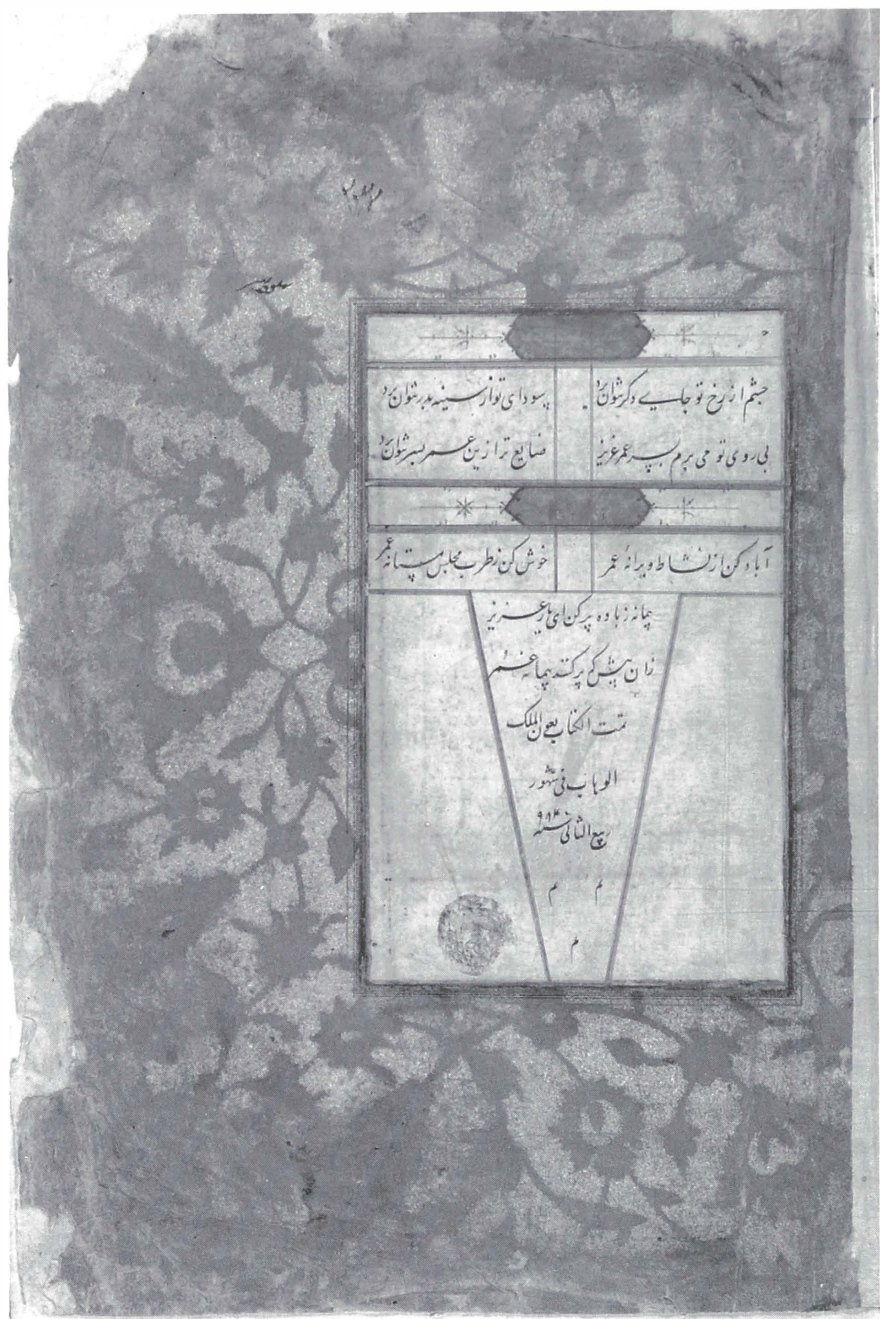 چشم از رخ تو جایی دگر نتوان برد
سودای تو از سینه بدر نتوان برد
بی روی تو می برم بسر عمر عزیز
ضایع تر ازین عمر بسر نتوان برد
آباد کن از نشاط ویرانهٔ عمر
خوش کن ز طرب مجلس مستانهٔ عمر
پیمانه ز باده پر کن ای یار عزیز
زان پیش که پر کنند پیمانهٔ عمر
تمت الکتاب بعون الملک
الوهاب فی شهور
ربیع الثانی سنه ۹۸۴
م م
م